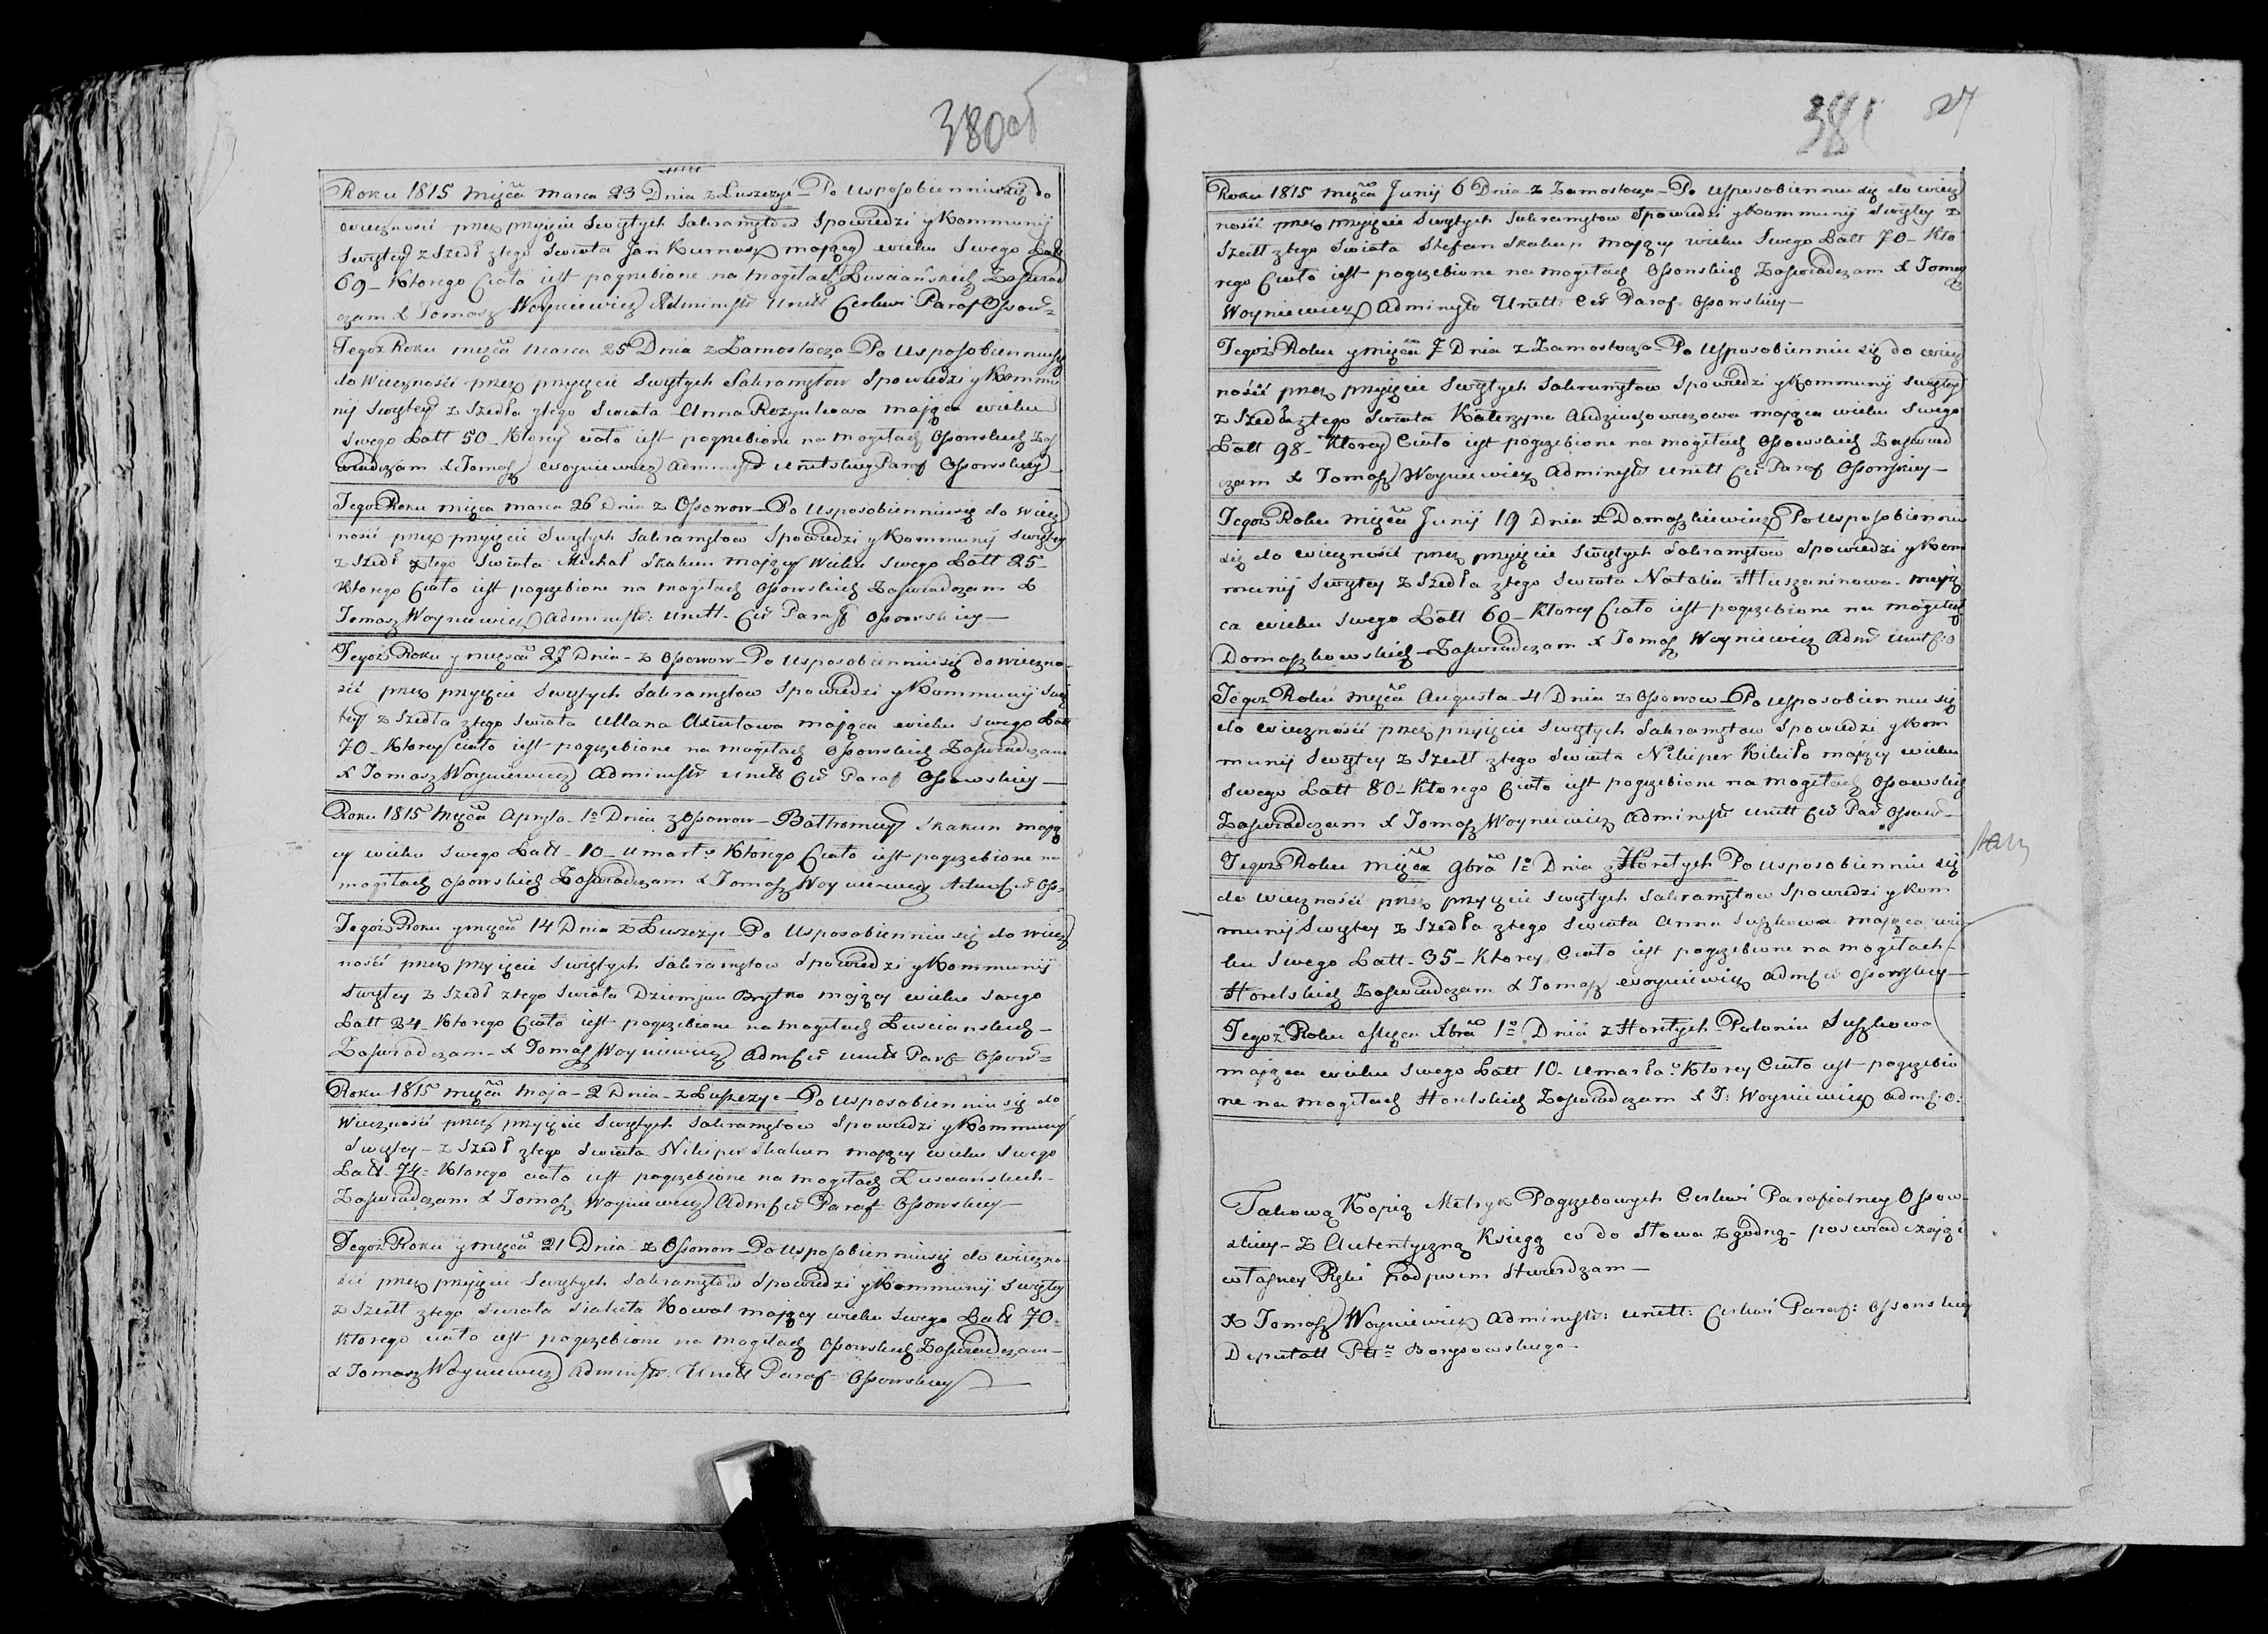 380об
Roku 1815 Mięca Marca 23 Dnia z Łuszczyc Po Usposobienniu się do
wiecznosci przez przyięcie Swiętych Sakramętow Spowiedzi y Kommunij
Swiętey z Szedł z tego Swiata Jan Kurnosz mający wieku Swego Latt
69 - Ktorego Ciało iest pogrzebione na mogiłach Łusciańskich Zaswiad
czam X Tomasz Woyniewicz Administr Unitt Cerkwi Paraf Ossow=
Tegoż Roku mięca Marca 25 Dnia z Zamostocza - Po Usposobienniu się
do Wiecznosci przez przyięcie Swiętych Sakramętow Spowiedzi y Kommu
nij Swiętey z Szedła z tego Swiata Anna Rozynkowa mająca wieku
Swego Latt 50 - Ktorey ciało iest pogrzebione na mogiłach Ossowskich Zas
wiadczam X Tomasz Woyniewicz Administr Unitskiey Paraf Ossowskiey
Tegoż Roku mięca marca 26 Dnia z Ossowow - Po Usposobienniu się do Wiecz
nosci przez przyięcie Swiętych Sakramętow Spowiedzi y Kommunij Swiętey
z Szedł z tego Swiata Michał Skakun mający Wieku Swego Latt 25 -
Ktorego Ciało iest pogrzebione na mogiłach Ossowskich Zaswiadczam X
Tomasz Woyniewicz Administr: Unitt - Cer Paraff Ossowskiey -
Tegoż Roku y mięca 27 Dnia - z Ossowow - Po Usposobienniu się do Wieczno-
sci przez przyięcie Swiętych Sakramętow Spowiedzi y Kommunij Swię
tey z Szedła z tego Swiata Ullana mająca wieku Swego Latt
70 - Ktorey ciało iest pogrzebione na mogiłach Ossowskich Zaswiadczam
X Tomasz Woyniewicz Administr Unitt Cer Paraf Ossowskiey -
Roku 1815 Mięca Apryla - 1o Dnia z Ossowow - Bałtromiey Skakun mają
cy wieku Swego Latt - 10 - umarł: Ktorego Ciało iest pogrzebione na
mogiłach Ossowskich Zaswiadczam X Tomasz Woyniewicz Adm Cer Oss=
Tegoż Roku y mięca 14 Dnia z Łuszczyc - Po Usposobienniu się do wiecz
nosci przez przyięcie Swiętych Sakramętow Spowiedzi y Kommunij
Swiętey z Szedł z tego Swiata Dziemjan Brytko mający wieku Swego
Latt 24 - Ktorego Ciało iest pogrzebione na mogiłach Łuscianskich -
Zaswiadczam - X Tomasz Woyniewicz Adm Cer Unitt Paraf - Ossow=
Roku 1815 mięca Maja - 2 Dnia - z Łuszczyc - Po Usposobienniu się do
Wiecznosci przez przyięcie Swiętych Sakramętow Spowiedzi y Kommunij
Swiętey - z Szedł z tego Swiata Nikiper Skakun mający wieku Swego
Latt - 74 - Ktorego ciało iest pogrzebione na mogiłach Łusciańskich -
Zaswiadczam X Tomasz Woyniewicz Adm Cer Paraf - Ossowskiey -
Tegoż Roku y mięca 21 Dnia z Ossowow - Po Usposobienniu się do wieczno-
sci przez przyięcie Swiętych Sakramętow Spowiedzi y Kommunij Swiętey
z Szedtt z tego Swiata Kowal mający wieku Swego Latt 70 -
Ktorego ciało iest pogrzebione na mogiłach Ossowskich Zaswiadczam -
X Tomasz Woyniewicz Administr: Unitt Paraf - Ossowskiey
381 27
Roku 1815 mięca Junij 6 Dnia - z Zamostocza - Po Usposobienniu się do wiecz
nosci przez przyięcie Swiętych Sakramętow Spowiedzi y Kommunij Swiętey z
Szedtt z tego Swiata Stefan Skakun mający wieku Swego Latt 70 - Kto
rego Ciało iest pogrzebione na mogiłach Ossowskich Zaswiadczam X Tomasz
Woyniewicz Administr Unitt: Cer Paraf - Ossowskiey -
Tegoż Roku y mięca 7 Dnia z Zamostocza - Po Usposobienniu się do wiecz
nosci przez przyięcie Swiętych Sakramętow Spowiedzi y Kommunij Swiętey
z Szedła z tego Swiata Katerzyna mająca wieku Swego
Latt 98 - Ktorey Ciało iest pogrzebione na mogiłach Ossowskich Zaswiad
czam X Tomasz Woyniewicz Administr Unitt Cer Paraf Ossowskiey -
Tegoż Roku mięca Junij 19 Dnia z Domaszkiewicz Po Usposobienniu
się do wiecznosci przez przyięcie Swiętych Sakramętow Spowiedzi y Kom
munij Swiętey z Szedła z tego Swiata Natalia Hłuszaninowa - mają
ca wieku Swego Latt 60 - Ktorey Ciało iest pogrzebione na mogiłach
Domaszkowskich - Zaswiadczam X Tomasz Woyniewicz Adm Unit
Tegoż Roku mięca Augusta - 4 Dnia z Ossowow - Po Usposobienniu się
do Wiecznosci przez przyięcie Swiętych Sakramętow Spowiedzi y Kom
munij Swiętey z Szedtt z tego Swiata Nikiper Kikiło mający wieku
Swego Latt 80 - Ktorego Ciało iest pogrzebione na mogiłach Ossowskich
Zaswiadczam X Tomasz Woyniewicz Administr Unitt Cer Par Ossow -
Tegoż Roku mięca 9bra 1o Dnia z Horełych Po Usposobienniu się
do Wiecznosci przez przyięcie Swiętych Sakramętow Spowiedzi y Kom
munij Swiętey z Szedła z tego Swiata Anna Suszkowa mająca wie
ku Swego Latt - 35 - Ktorey Ciało iest pogrzebione na mogiłach -
Horelskich Zaswiadczam X Tomasz Woyniewicz Adm Cer Ossowskiey -
Tegoż Roku Mięca Xbra 1o Dnia z Horełych - Polonia Suszkowa
mająca wieku Swego Latt 10 - Umarła: Ktorey Ciało iest pogrzebio
ne na mogiłach Horelskich Zaswiadczam X T: Woyniewicz Adm: O:
Takową Kopią Metryk Pogrzebowych Cerkwi Parafialney Ossow-
skiey - z Autentyczną Księgą co do Słowa zgodną - poswiadczając
własney Ręki podpisem stwierdzam -
X Tomasz Woyniewicz Administr: Unitt: Cerkwi Paraf: Ossowskiey
Deputatt Pttu Borysowskiego -